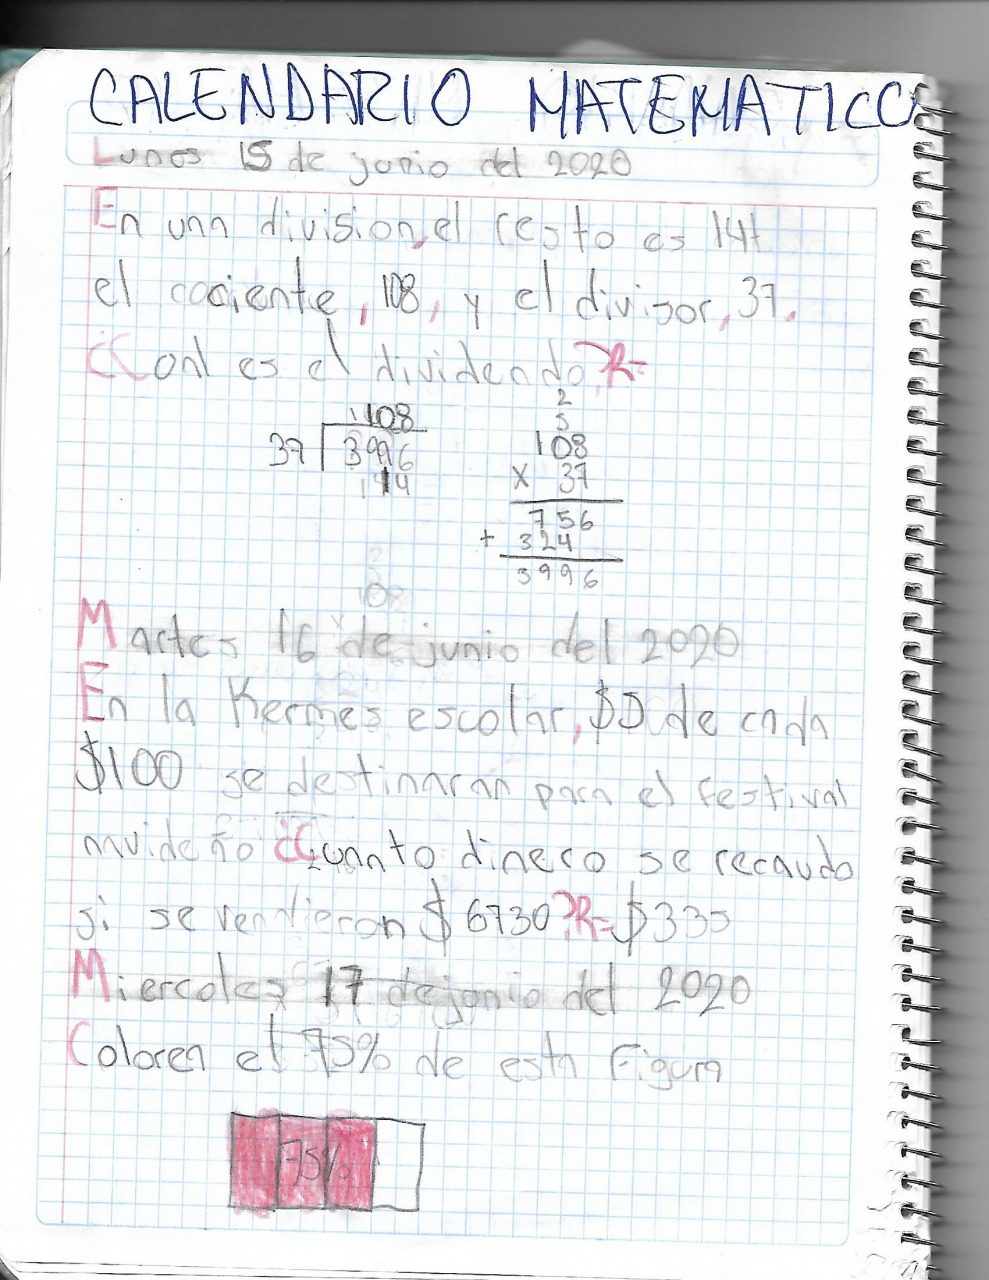 CALENDARIO MATEMATICO
Lunes 15 de junio del 2020
En una division, el resto es 14
el cociente, 108, y el divisor, 37.
¿Cual es el dividendo? R=
108
37 3996
144
2
5
108
x 37
756
+ 324
3996
Martes 16 de junio del 2020
En la Kermes escolar, $5 de cada
$100 se destinaran para el festival
navideño ¿Cuanto dinero se recaudo
si se vendieron $6730? R= $335
Miercoles 17 de junio del 2020
Colorea el 75% de esta Figura
75%